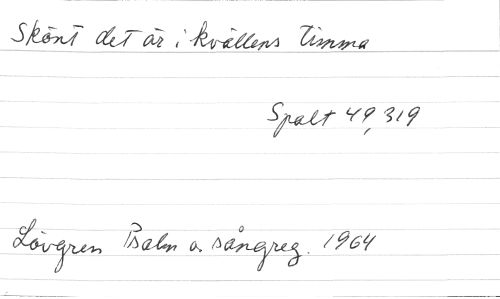 Skönt det är i kvällens timma
Spalt 49, 319
Lövgren Psalm o. sångreg. 1964